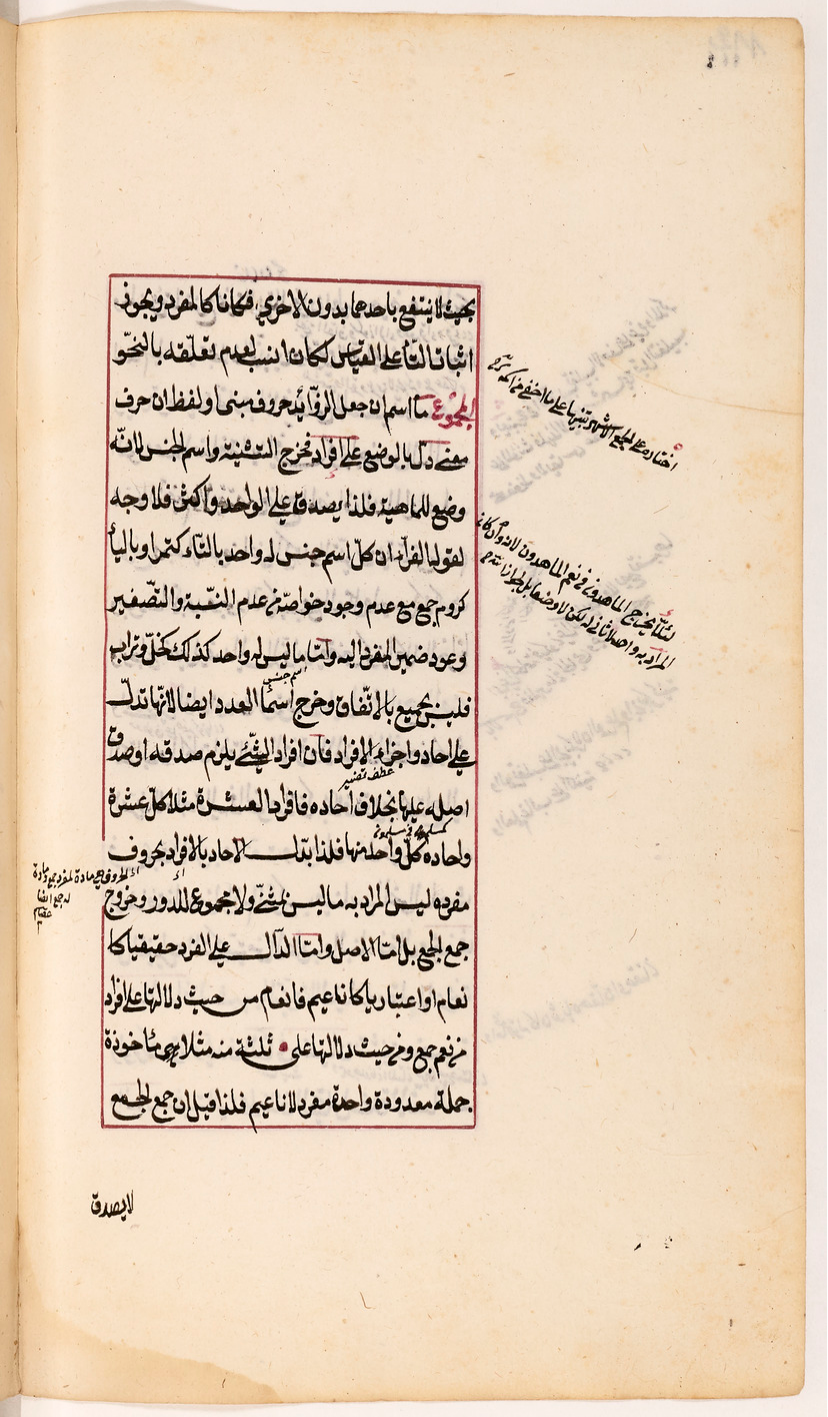 بحيث لا ينتفع باحدهما بدون الاخرى فكانا كالمفرد ويجوز
اثبات التاء على القياس لكان انسب لعدم تعلقه بالنحو
المجموع ما اسم ان جعل الزوائد حروف مبنى او لفظ ان حرف
معنى دل بالوضع على افراد فخرج التثنية واسم الجنس لانه
وضع للماهية فلذا يصدق على الواحد واكثر فلا وجه
لقول الفراء ان كل اسم جنس له واحد بالتاء كتمر او بالياء
كروم جمع مع عدم وجود خواصه من عدم النسبة والتصغير
وعود ضمير المفرد اليه واما ما ليس له واحد كذلك كخل وتراب
فليس بجمع بالاتفاق وخرج اسماء العدد ايضا لانها تدل
اسم جنس
على احاد واجزاء لا افراد فان افراد الشيء يلزم صدقه او صدق
عطف تفسير
اصله عليها بخلاف احاده فافراد العشرة مثلا كل عشرة
كمسلمون في مسلمون
واحاده كل واحد منها فلذا بدل الاحاد بالافراد بحروف
مفرده ليس المراد به ما ليس بمثنى ولا مجموع للدور وخروج
جمع الجمع بل اما الاصل واما الدال على الفرد حقيقيا كا
نعام او اعتباريا كاناعيم فانعام من حيث دلالتها على افراد
من نعم جمع ومن حيث دلالتها على ثلثة منه مثلا يهى مأخوذة
جملة معدودة واحدة مفرد لاناعيم فلذا قيل ان جمع الجمع
لا يصدق
اختاره على الجمع الاشهر تنبيها على ما اخفى من
لئلا يحتاج الماهدون في نعم الماهدون لانه وان كان
المراد به واحد لا ثاني له لكن لا وضعا بل لجواز
مادة المفرد
له جمع ايضا